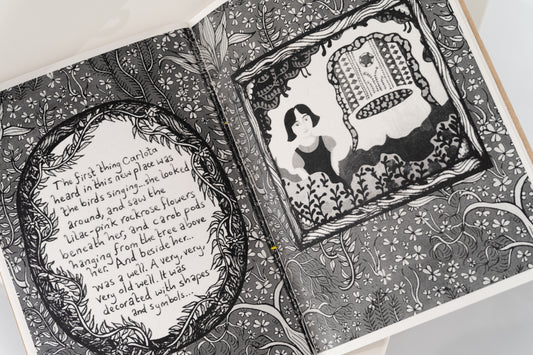 The first thing Carlota
heard in this new place was
the birds singing... she looked
around, and saw the
lilac-pink rockrose flowers
beneath her, and carob pods
hanging from the tree above
her. And beside her...
was a well. A very, very,
very old well. It was
decorated with shapes
and symbols...